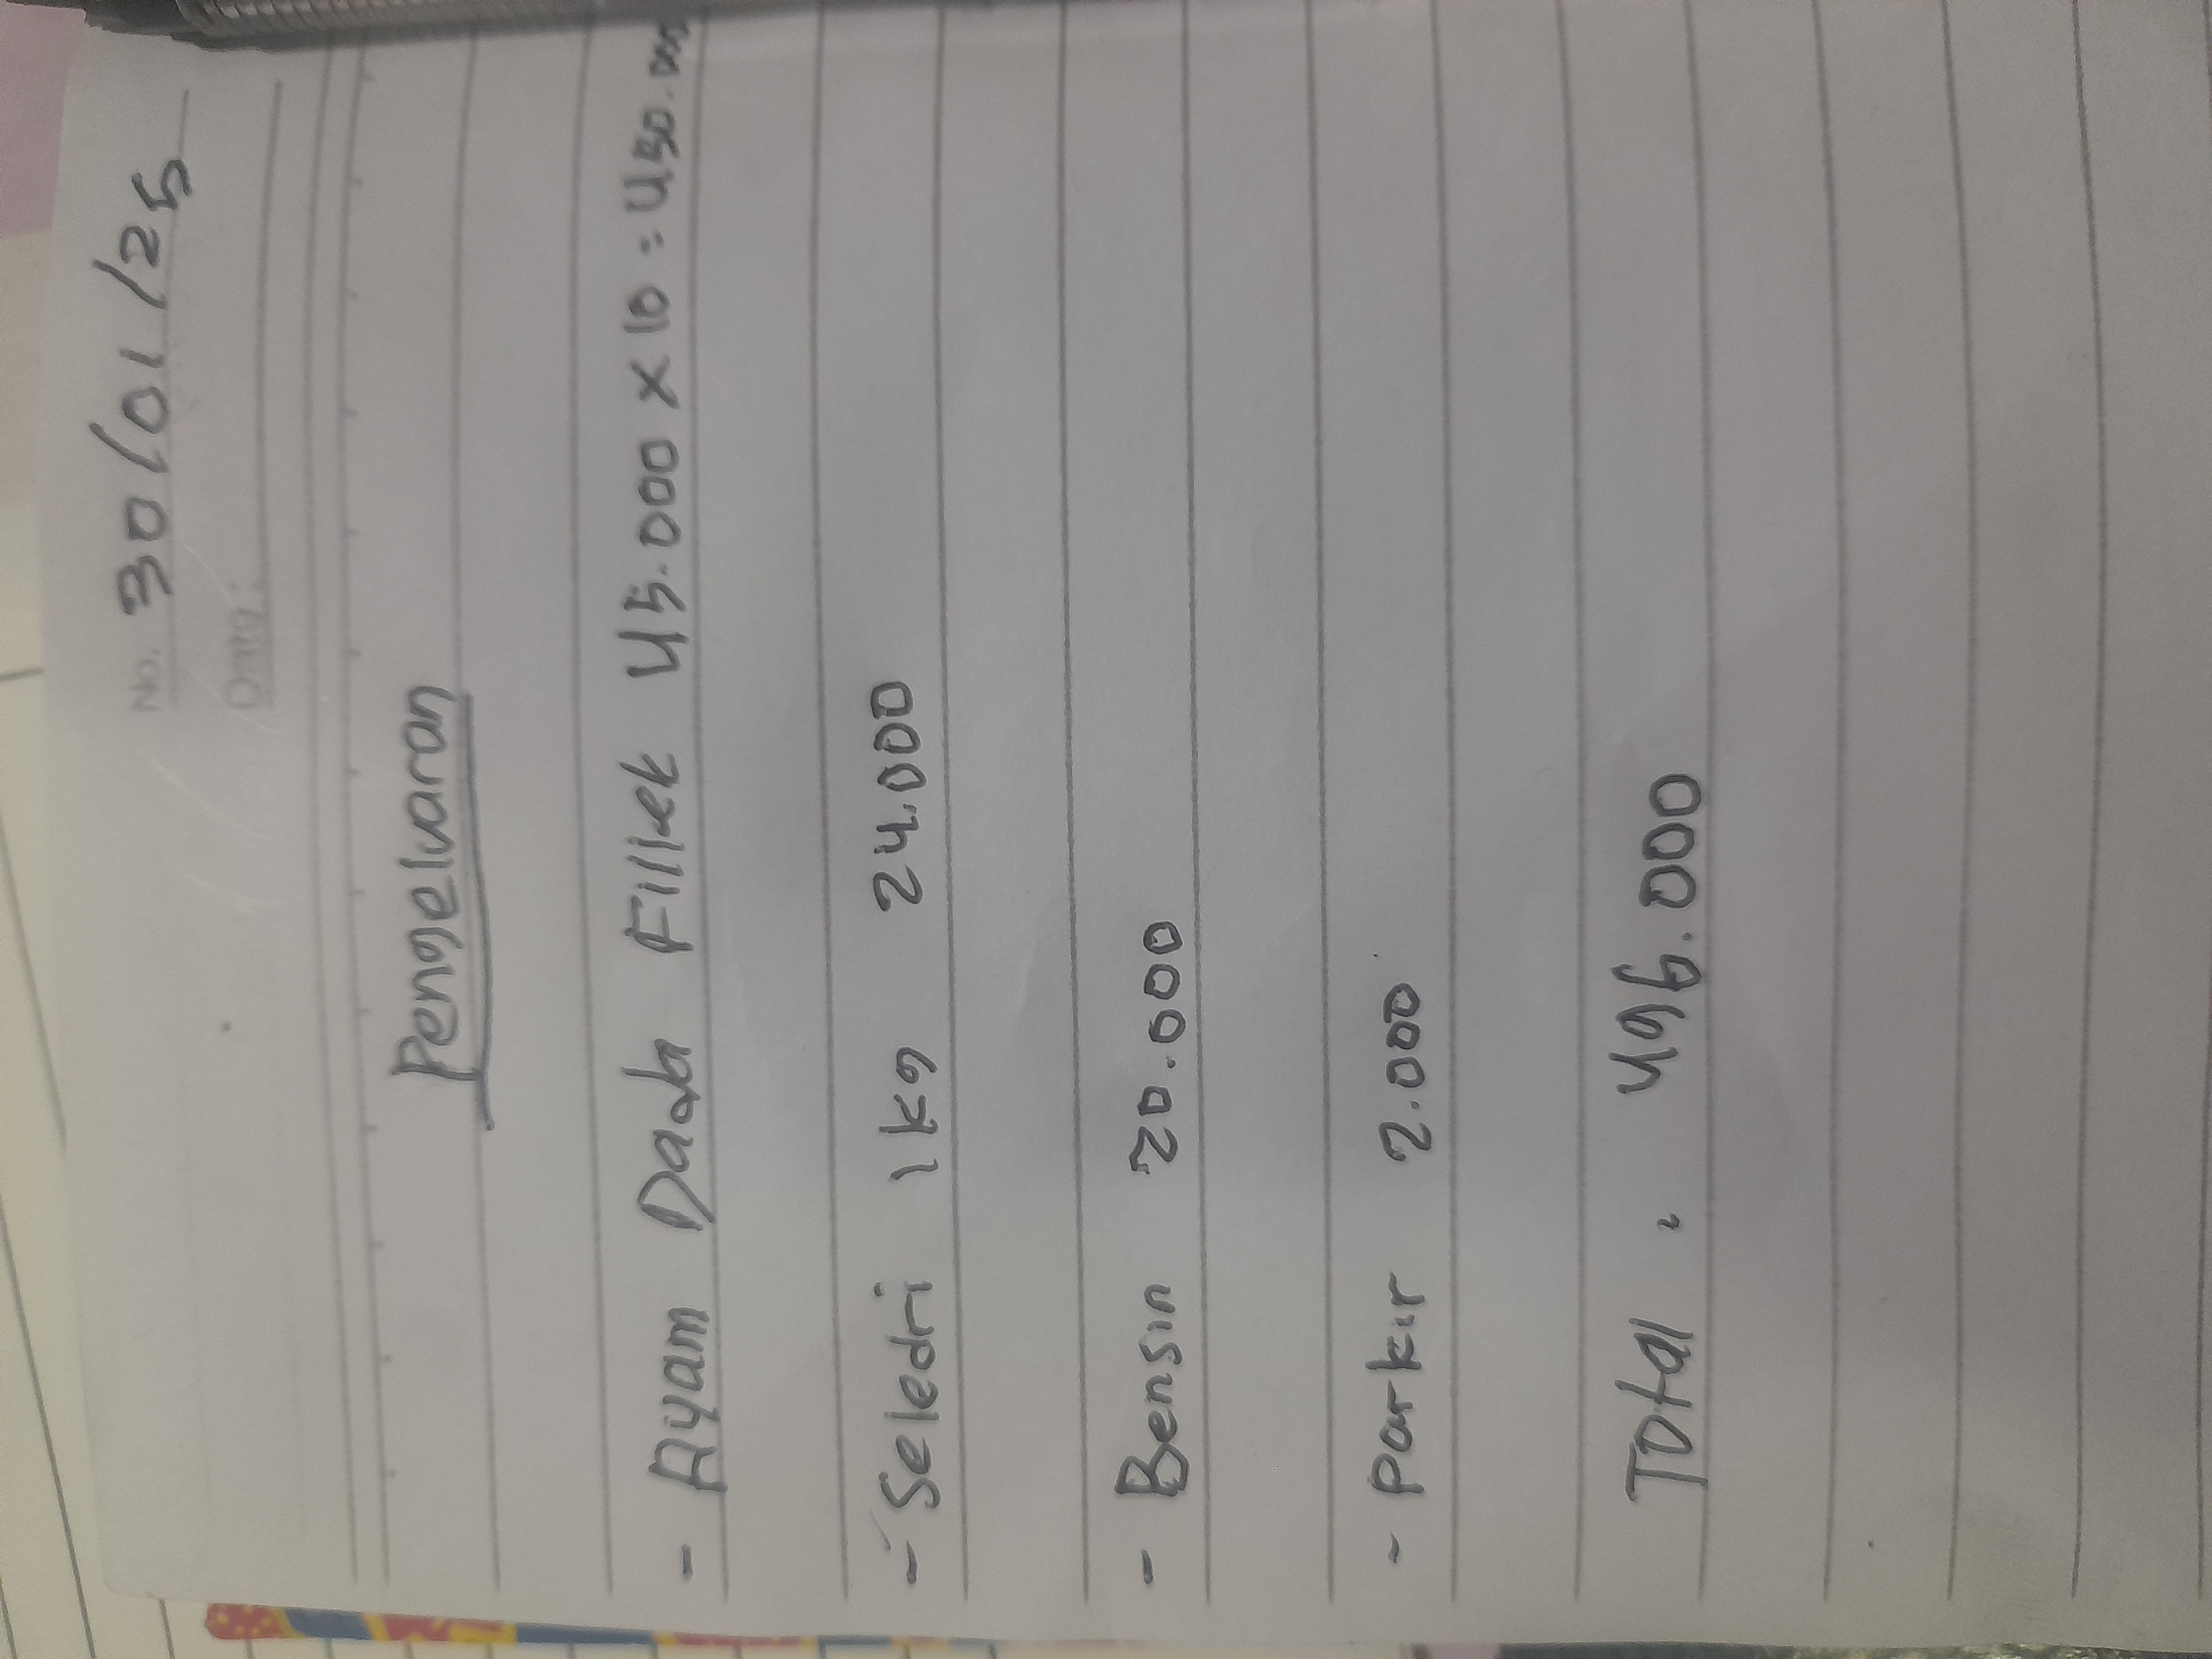 No. 30/01/25
Date:
Pengeluaran
- Ayam Dada Fillet 45.000 x 10 = 450.000
- Seledri 1 kg 24.000
- Bensin 20.000
- Parkir 2.000
Total : 496.000